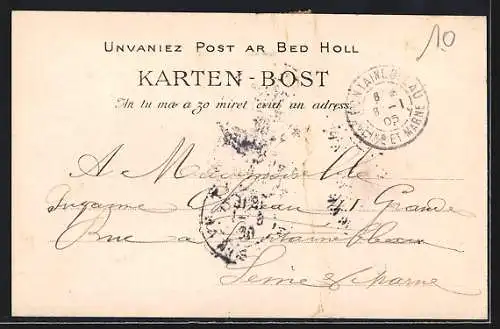 Unvaniez Post ar Bed Holl
10
KARTEN-BOST
An tu ma a zo miret evit an adress
FONTAINEBLEAU
8 -1
05
SEINE ET MARNE
A Mademoiselle
Suzanne 41 Grande
Rue à Fontainebleau
Seine & Marne